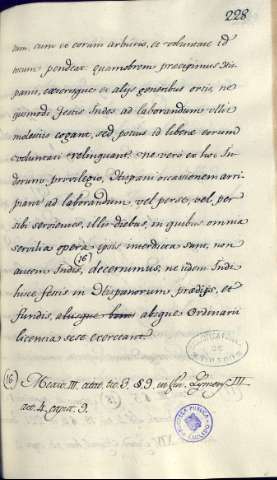 228
tum, cum ex eorum arbitrio, et voluntate id
totum pendeat quamobrem præcipimus His-
panis, cæterisque ex alijs gentibus ortis, ne
ejusmodi festis Indos ad laborandum ullis
molestiis cogant, sed potius id liberæ eorum
voluntati relinquant. ne vero ex hoc In-
dorum privilegio, Hispani occasionem arri-
piant ad laborandum vel per se, vel per
sibi servientes, illis diebus, in quibus omnia
servilia opera ipsis interdicta sunt, non
autem Indis, (16) decernimus, ne iidem Indi
hisce festis in Hispanorum prædijs, et
fundis, absque Ordinarii
licentia sese exerceant.
(16) Mexic. III. tit. 3. § 9. in Lim. III
act. 4. cap. 9.
BIBLIOTECA PUBLICA
DE TOLEDO